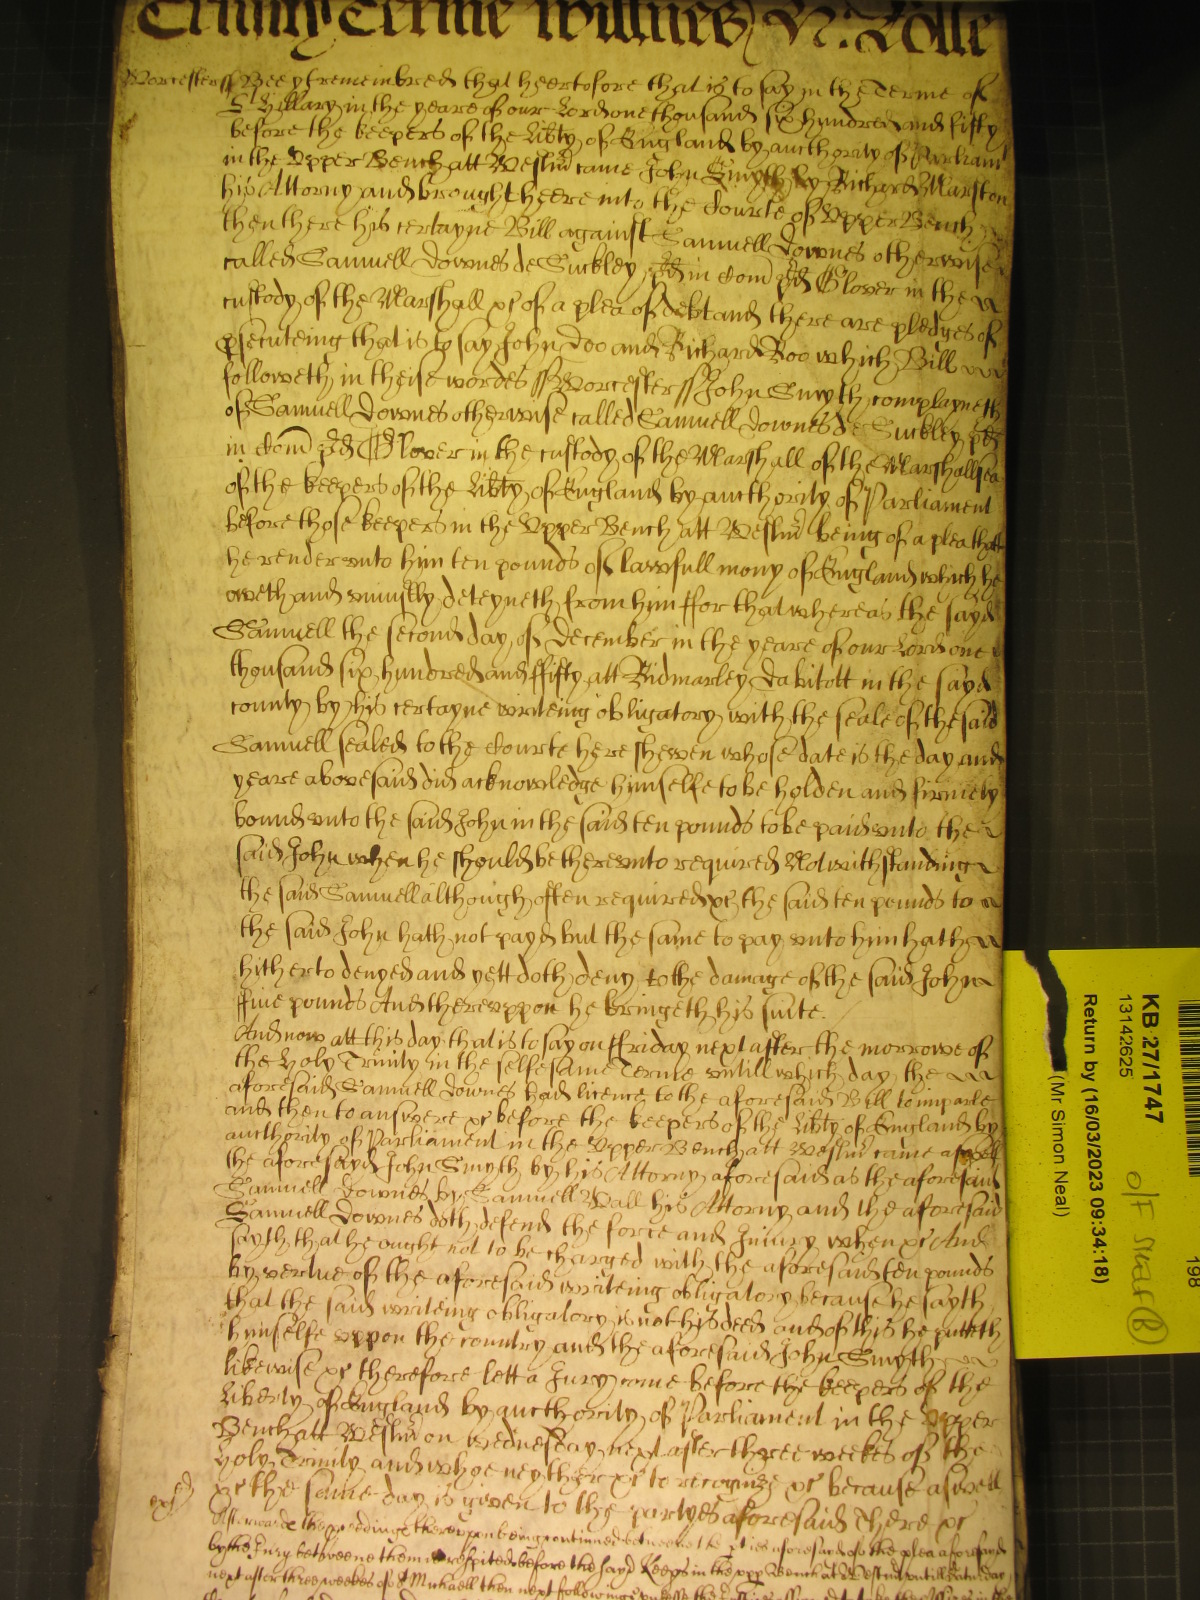 Trinity Terme Wittnes H: Rolle
Worcester ss Bee yt remembred that heertofore that is to say in the Terme of
St Hillary in the yeare of our Lord one thousand six hundred and fifty
before the keepers of the libty of England by aucthority of Parliamt
in the Upper Bench att Westm came John Smyth by Richard Marston
his Attorny and brought heere into the Courte of Upper Bench
then there his certayne Bill against Samuell Downes otherwise
called Samuell Downes de Suckley in Com Glover in the
custody of the Marshall &c of a plea of debt and there are pledges of
psecuteing that is to say John Doo and Richard Roo which Bill
followeth in theise wordes ss Worcester ss John Smyth complayneth
of Samuell Downes otherwise called Samuell Downes de Suckley
in Com Glover in the custody of the Marshall of the Marshallsea
of the keepers of the libty of England by aucthority of Parliament
before those keepers in the Upper Bench att Westm being of a plea that
he render unto him ten pounds of lawfull mony of England which he
oweth and uniustly deteyneth from him ffor that whereas the sayd
Samuell the second day of December in the yeare of our Lord one
thousand six hundred and ffifty att Ridmarley Dabitott in the sayd
county by his certayne writeing obligatory with the seale of the said
Samuell sealed to the Courte here shewen whose date is the day and
yeare abovesaid did acknowledge himselfe to be holden and firmely
bound unto the said John in the said ten pounds to be paid unto the
said John when he should be thereunto required Notwithstanding
the said Samuell although often required &c the said ten pounds to
the said John hath not payd but the same to pay unto him hath
hitherto denyed and yett doth deny to the damage of the said John
ffive pounds And thereuppon he bringeth his suite.
And now att this day that is to say on ffriday next after the morrowe of
the Holy Trinity in the selfe same Terme untill which day the
aforesaid Samuell Downes had licence to the aforesaid Bill to imparle
and then to answere &c before the keepers of the libty of England by
aucthority of Parliament in the Upper Bench att Westm came aswell
the aforesayd John Smyth by his Attorny aforesaid as the aforesaid
Samuell Downes by Samuell Wall his Attorny and the aforesaid
Samuell Downes doth defend the force and Iniury when &c And
sayth that he ought not to be charged with the aforesaid ten pounds
by vertue of the aforesaid writeing obligatory because he sayth
that the said writeing obligatory is not his deed and of this he putteth
himselfe uppon the country and the aforesaid John Smyth
likewise &c therefore lett a Jury come before the keepers of the
liberty of England by aucthority of Parliament in the Upper
Bench att Westm on Wednesday next after three weekes of the
Holy Trinity and whoe neyther &c to recognize &c because aswell
&c the same day is given to the partyes aforesaid there &c
Afterwards the pceedings thereupon being continued betweene the pties aforesaid of the plea aforesaid
by the Jury betweene them respited before the sayd Keeps in the upp Bench at Westm untill Saturday
next after three weekes of St Michaell then next following
KB 27/1747
13142625
Return by (16/03/2023 09:34:18)
(Mr Simon Neal)
198